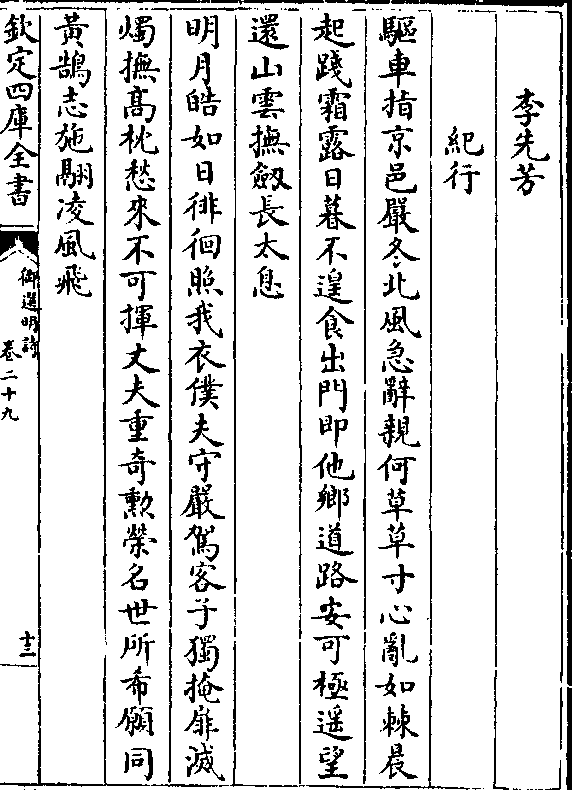 李先芳
紀行
驅車指京邑嚴冬北風急辭親何草草寸心亂如棘晨
起踐霜露日暮不遑食出門即他鄉道路安可極遥望
還山雲撫劔長太息
明月皓如日徘徊照我衣僕夫守嚴駕客子獨掩扉滅
燭撫髙枕愁來不可揮丈夫重奇勲榮名世所希願同
黃鵠志施翮凌風飛
欽定四庫全書
御選明詩
卷二十九
十三